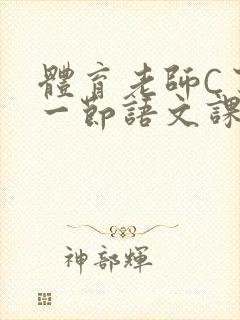 體育老師C
一節語文課
神部輝